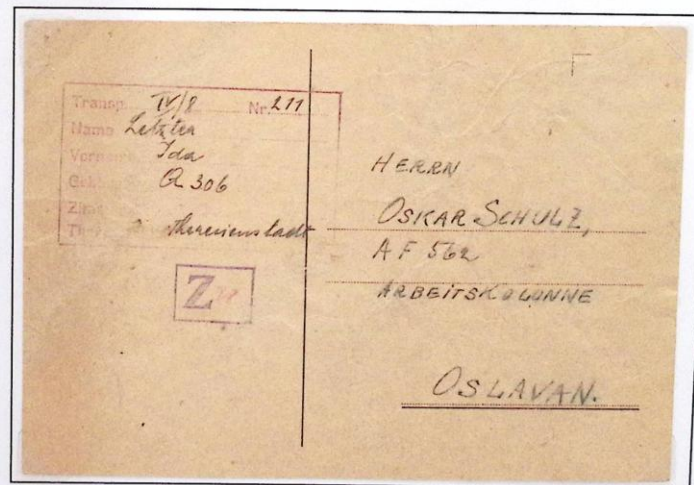 Transp. IV/8 Nr. 211
Name Letzter
Ida
Q 306
Theresienstadt
Z
HERRN
OSKAR SCHULZ,
AF 562
ARBEITSKOLONNE
OSLAVAN.